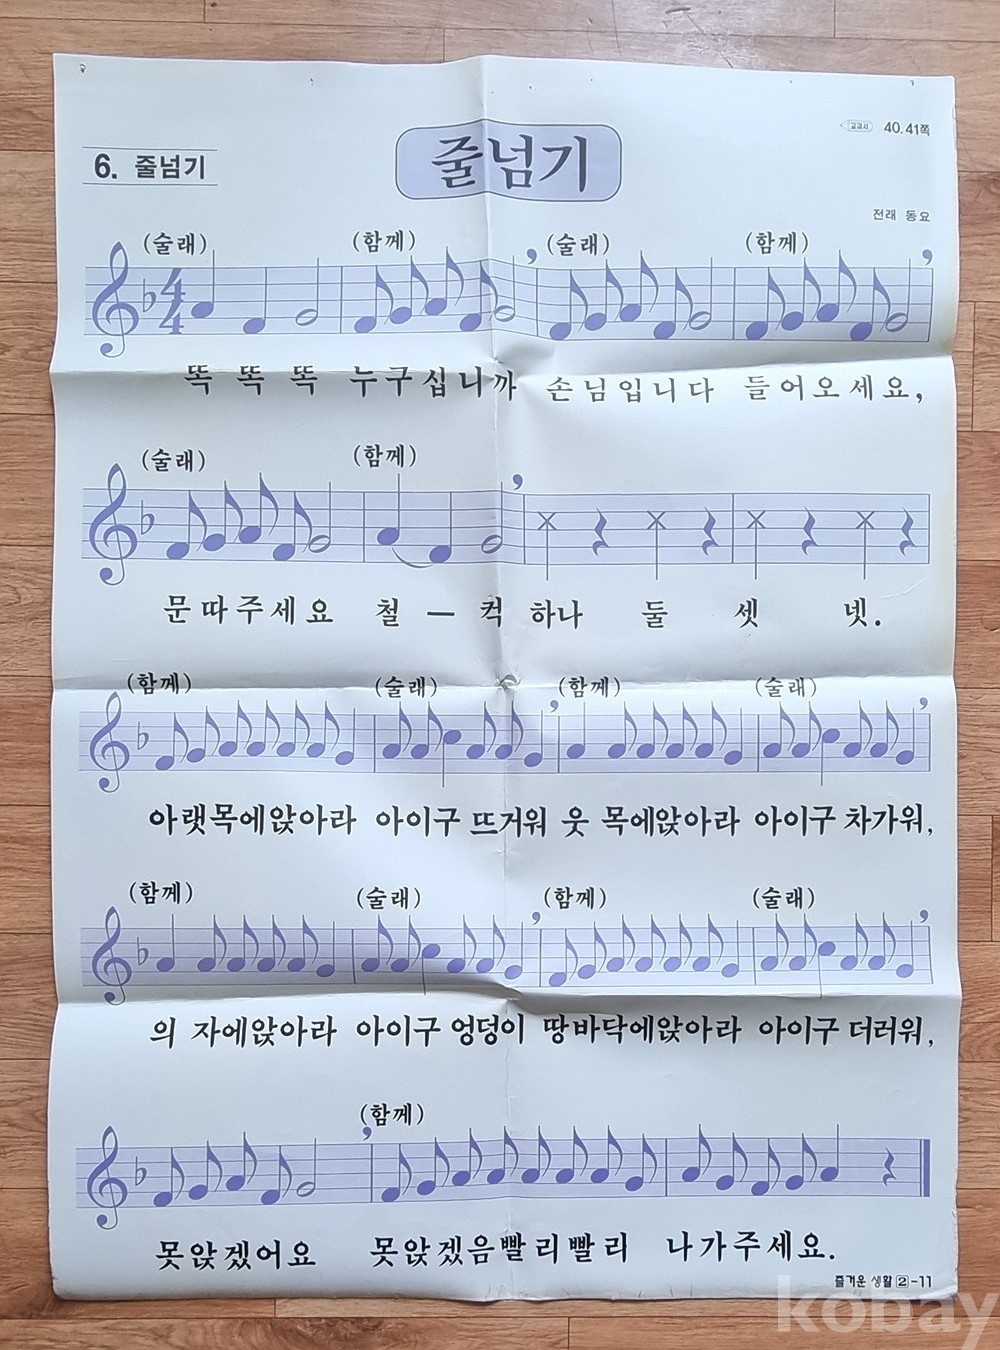 교과서 40.41쪽
6. 줄넘기
줄넘기
전래 동요
(술래) (함께) (술래) (함께)
똑 똑 똑 누구십니까 손님입니다 들어오세요,
(술래) (함께)
문따주세요 철 — 컥 하나 둘 셋 넷.
(함께) (술래) (함께) (술래)
아랫목에앉아라 아이구 뜨거워 웃 목에앉아라 아이구 차가워,
(함께) (술래) (함께) (술래)
의 자에앉아라 아이구 엉덩이 땅바닥에앉아라 아이구 더러워,
(함께)
못앉겠어요 못앉겠음빨리빨리 나가주세요.
즐거운 생활 2-11
kobay